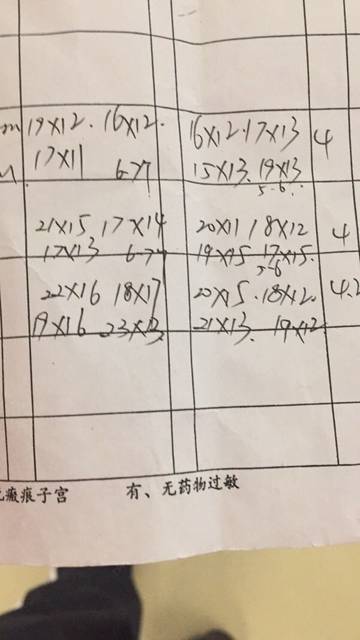 m 19×12. 16×12. 16×12. 17×13 4
17×11 6-7个 15×13. 19×13
5-6..
21×15 17×14 20×11 18×12 4
17×13 6-7个 19×15 17×15.
5-6
22×16 18×17 20×15. 18×12. 4.2
19×16 23×13 21×13. 19×12.
瘢痕子宫 有、无药物过敏